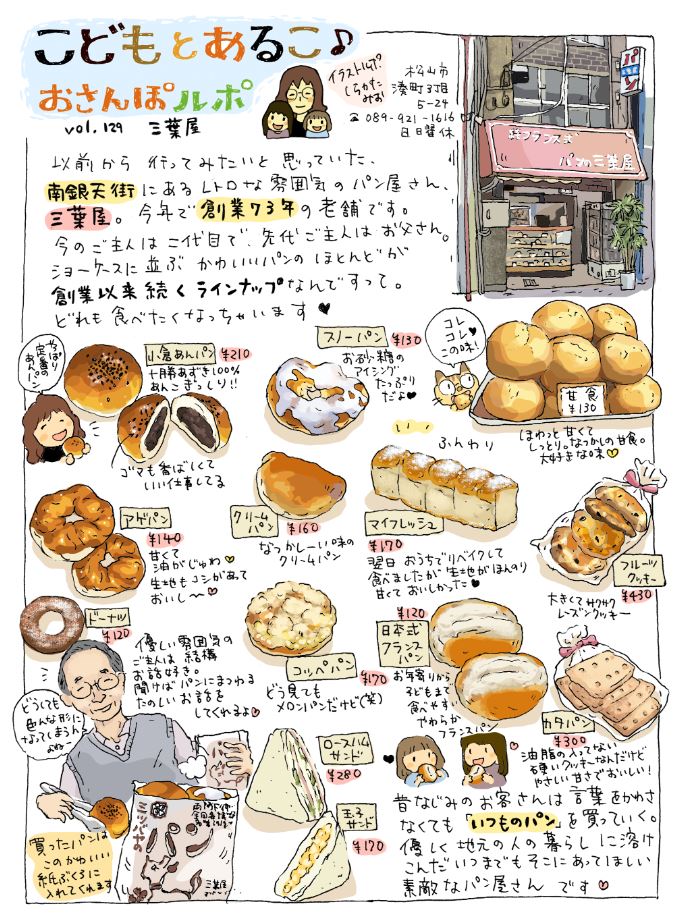 こどもとあるこ♪
おさんぽルポ
vol.129 三葉屋
イラストルポ
しらかた
みお
松山市
湊町3丁目
5-24
☎089-921-1616
日日曜休
パン
パンの三葉屋
以前から行ってみたいと思っていた、
南銀天街にあるレトロな雰囲気のパン屋さん、
三葉屋。今年で創業73年の老舗です。
今のご主人は二代目で、先代ご主人はお父さん。
ショーケースに並ぶかわいいパンのほとんどが
創業以来続くラインナップなんですって。
どれも食べたくなっちゃいます♥
やっぱり
定番の
あんパン
小倉あんパン ¥210
十勝あずき100%
あんこぎっしり!!
ゴマも香ばしくて
いい仕事してる
スノーパン ¥130
お砂糖の
アイシング
たっぷり
だよ♥
コレ
コレ♥
この味!
甘食
¥130
ほわっと甘くて
しっとり。なつかしの甘食。
大好きな味♡
アゲパン
¥140
甘くて
油がじゅわ♡
生地もコシがあって
おいし〜♥
クリーム
パン
¥160
なつかしーい味の
クリームパン
ふんわり
マイフレッシュ
¥170
翌日おうちでリベイクして
食べましたが生地がほんのり
甘くておいしかった♥
フルーツ
クッキー
¥430
大きくてサクサク
レーズンクッキー
ドーナツ
¥120
優しい雰囲気の
ご主人は結構
お話好き。
聞けばパンにまつわる
たのしいお話を
してくれるよ♥
どうしても
色んな形に
なってしまうん
よねー
コッペパン
¥170
どう見ても
メロンパンだけど(笑)
¥120
日本式
フランス
パン
お年寄りから
子どもまで
食べやすい
やわらか
フランスパン
カタパン
¥300
油脂の入ってない
硬いクッキーなんだけど
やさしい甘さでおいしい!
ロースハム
サンド
¥280
玉子
サンド
¥170
買ったパンは
このかわいい
紙ぶくろに
入れてくれます
ミツバヤ
三葉屋
昔なじみのお客さんは言葉をかわさ
なくても「いつものパン」を買っていく。
優しく地元の人の暮らしに溶け
こんだいつまでもそこにあってほしい
素敵なパン屋さんです♥